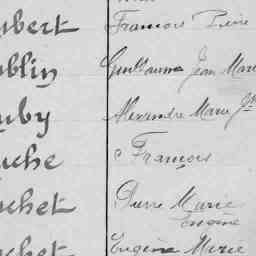 ubert François Pierre
blin Guillaume Jean Marie
uby Alexandre Marie Jn
uche François
chet Pierre Marie
Eugène
chet Eugène Marie